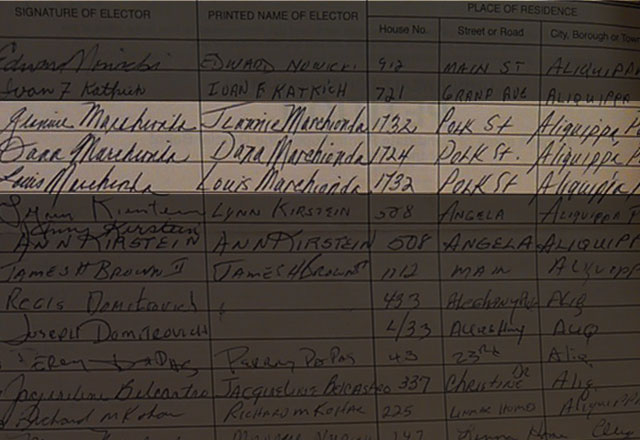 SIGNATURE OF ELECTOR PRINTED NAME OF ELECTOR PLACE OF RESIDENCE
House No. Street or Road City, Borough or Town
Edward EDWARD 912 MAIN ST ALIQUIPPA
Ivan F Katkich IVAN F KATKICH 721 GRAND AVE ALIQUIPPA
Jennie Marchionda Jennie Marchionda 1732 Polk St Aliquippa, P
Dana Marchionda Dana Marchionda 1724 Polk St. Aliquippa, P
Louis Marchionda Louis Marchionda 1732 Polk St Aliquippa, P
Lynn Kirstein LYNN KIRSTEIN 508 ANGELA Aliquippa
ANN KIRSTEIN ANN KIRSTEIN 508 ANGELA ALIQUIPP
JAMES H BROWN II JAMES H BROWN 1112 MAIN Aliquipp
REGIS Domitrovich 433 Aliq
Joseph Domitrovich 433 Aliq
PERRY PAPPAS 43 23rd Aliq
Jacqueline Belcastro JACQUELINE BELCASTRO 337 Christine DR Aliq
Richard M RICHARD M 225 Aliquippa
147